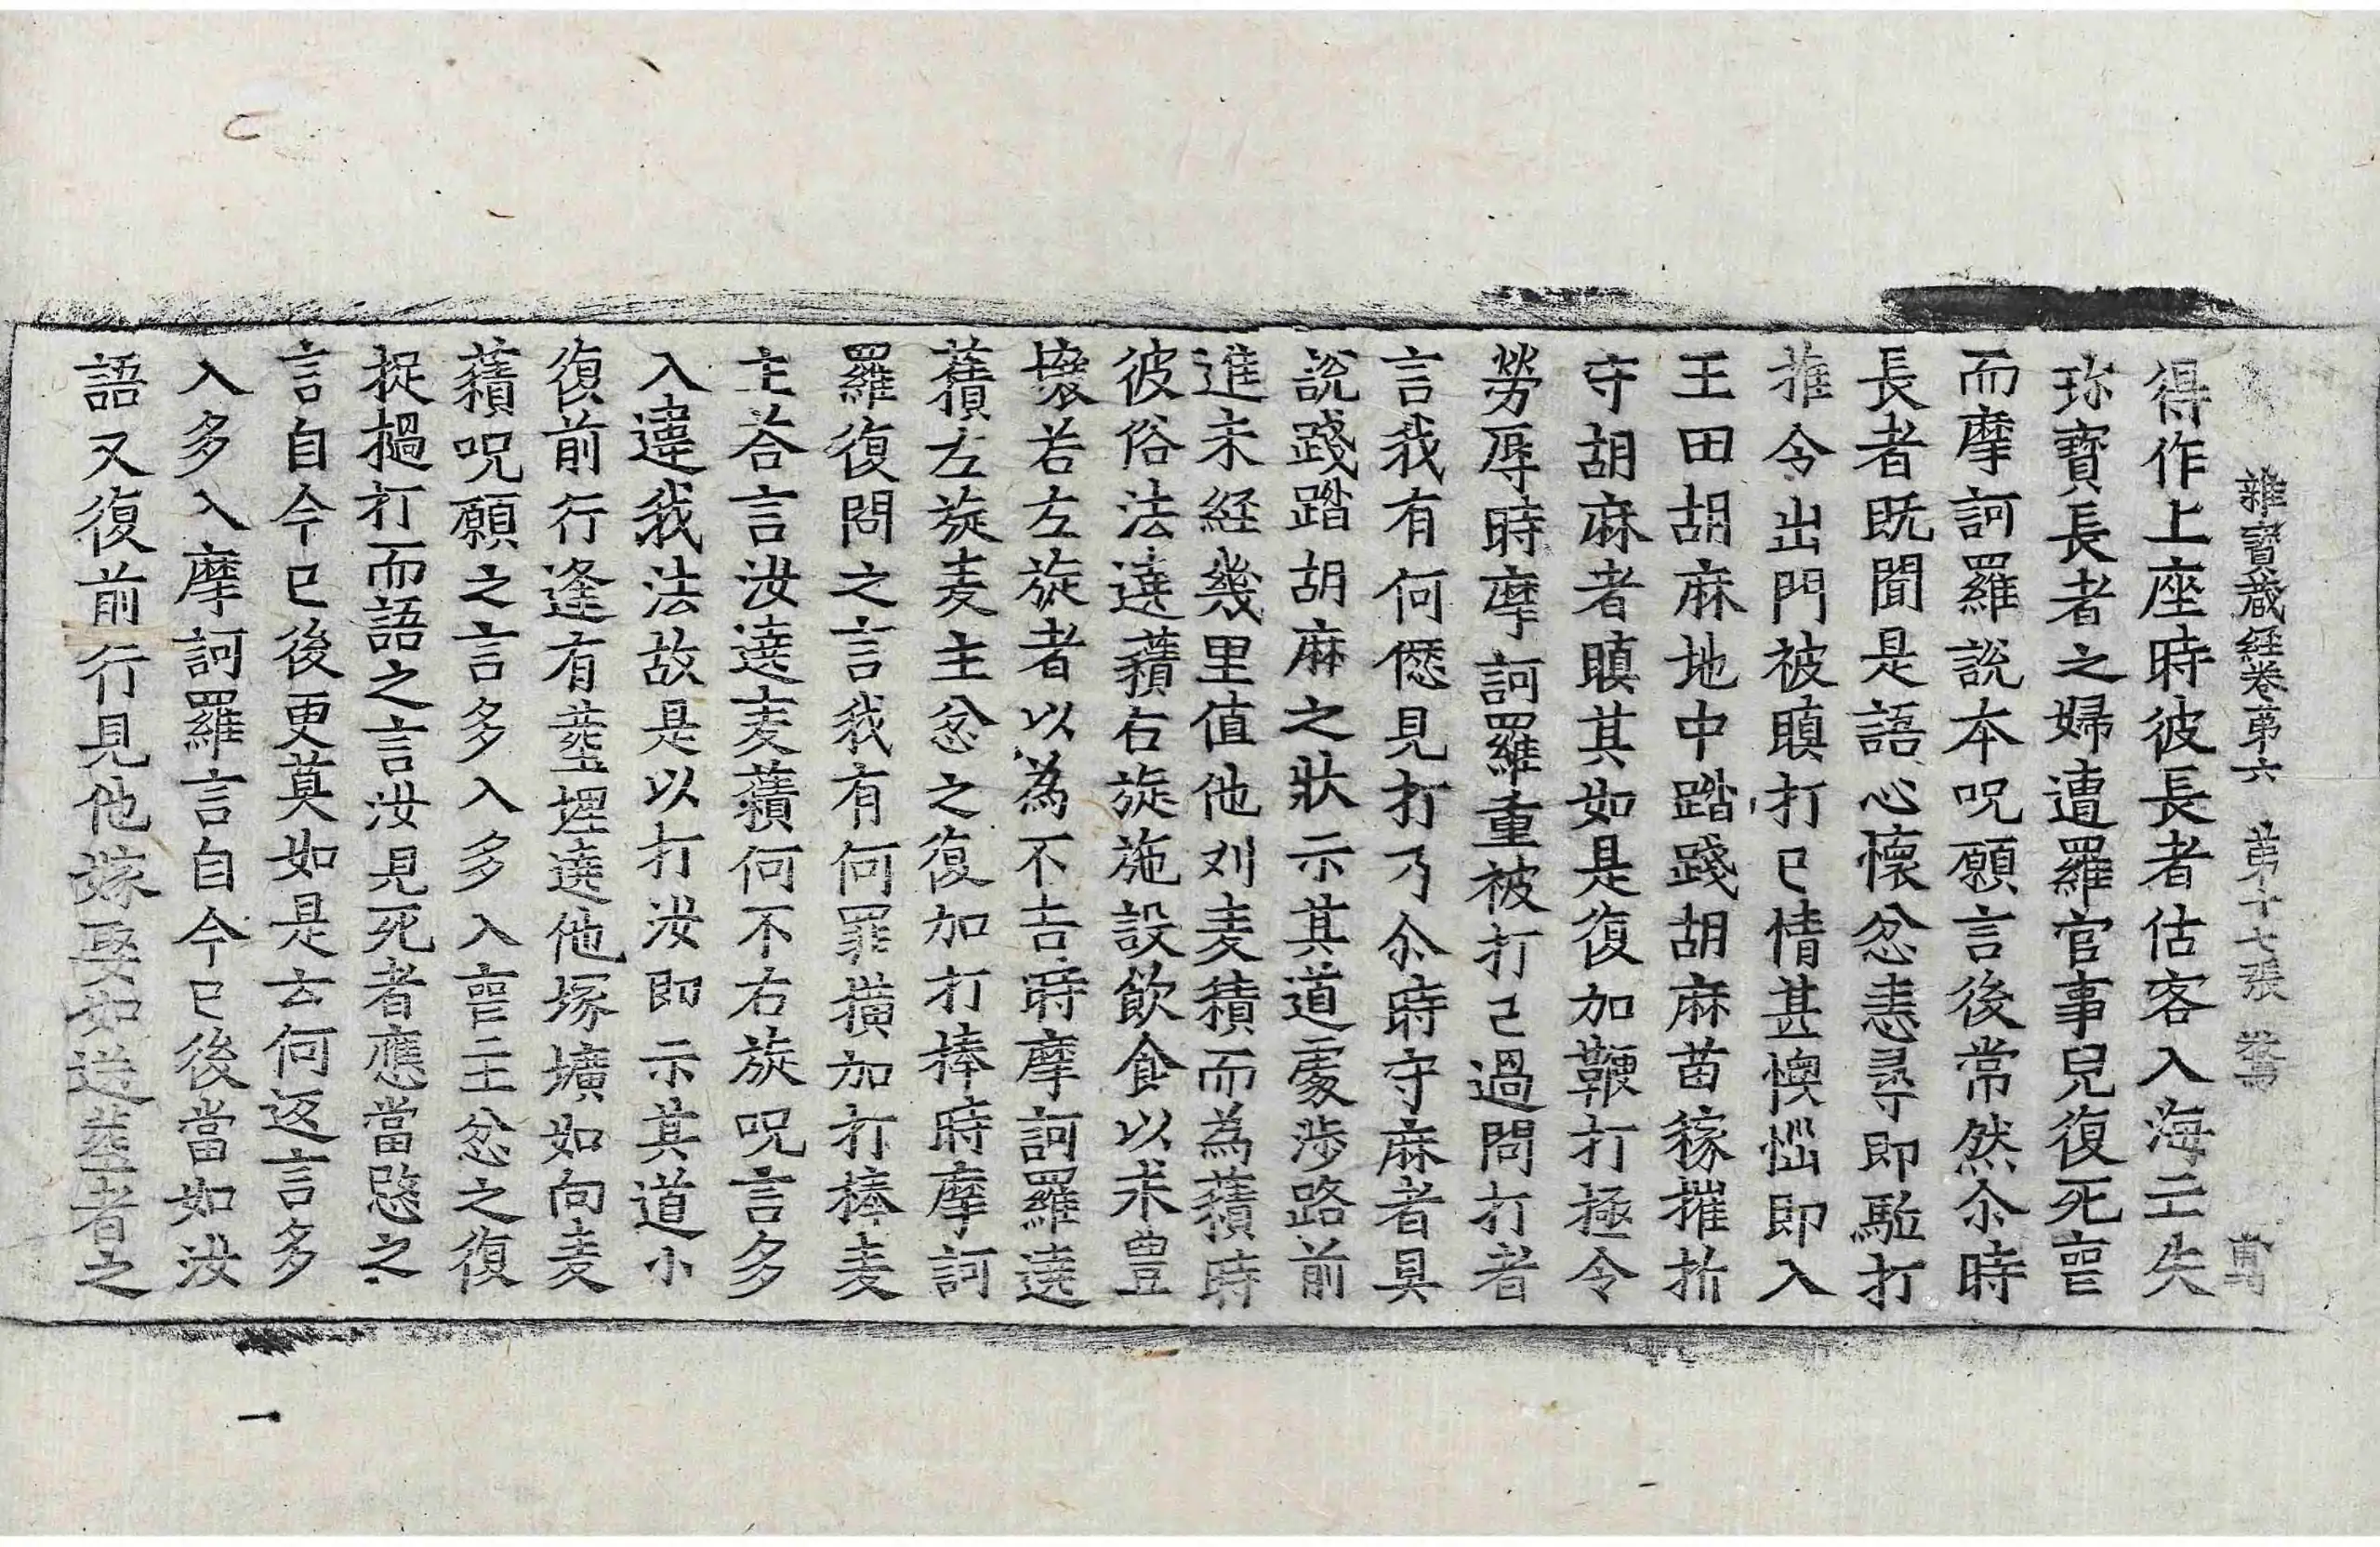 雜寶蔵経卷第六 第十七張 驚
得作上座時彼長者估客入海亡失
珎寶長者之婦遭羅官事兒復死䘮
而摩訶羅說本呪願言後常然尒時
長者既聞是語心懷忿恚尋即駈打
推令出門被瞋打已情甚懊惱即入
王田胡麻地中踏踐胡麻苗稼摧折
守胡麻者瞋其如是復加鞭打極令
勞辱時摩訶羅重被打已過問打者
言我有何𠎝見打乃尒時守麻者具
說踐踏胡麻之狀示其道處涉路前
進未経幾里值他刈麦積而為䕆時
彼俗法遶䕆右旋施設飲食以求豊
壤若左旋者以為不吉時摩訶羅遶
䕆左旋麦主忿之復加打棒時摩訶
羅復問之言我有何罪撗加打棒麦
主荅言汝遶麦䕆何不右旋呪言多
入違我法故是以打汝即示其道小
復前行逢有葬埋遶他塚壙如向麦
䕆呪願之言多入多入䘮主忿之復
捉撾打而語之言汝見死者應當愍之
言自今已後更莫如是云何返言多
入多入摩訶羅言自今已後當如汝
語又復前行見他嫁娶如送葬者之